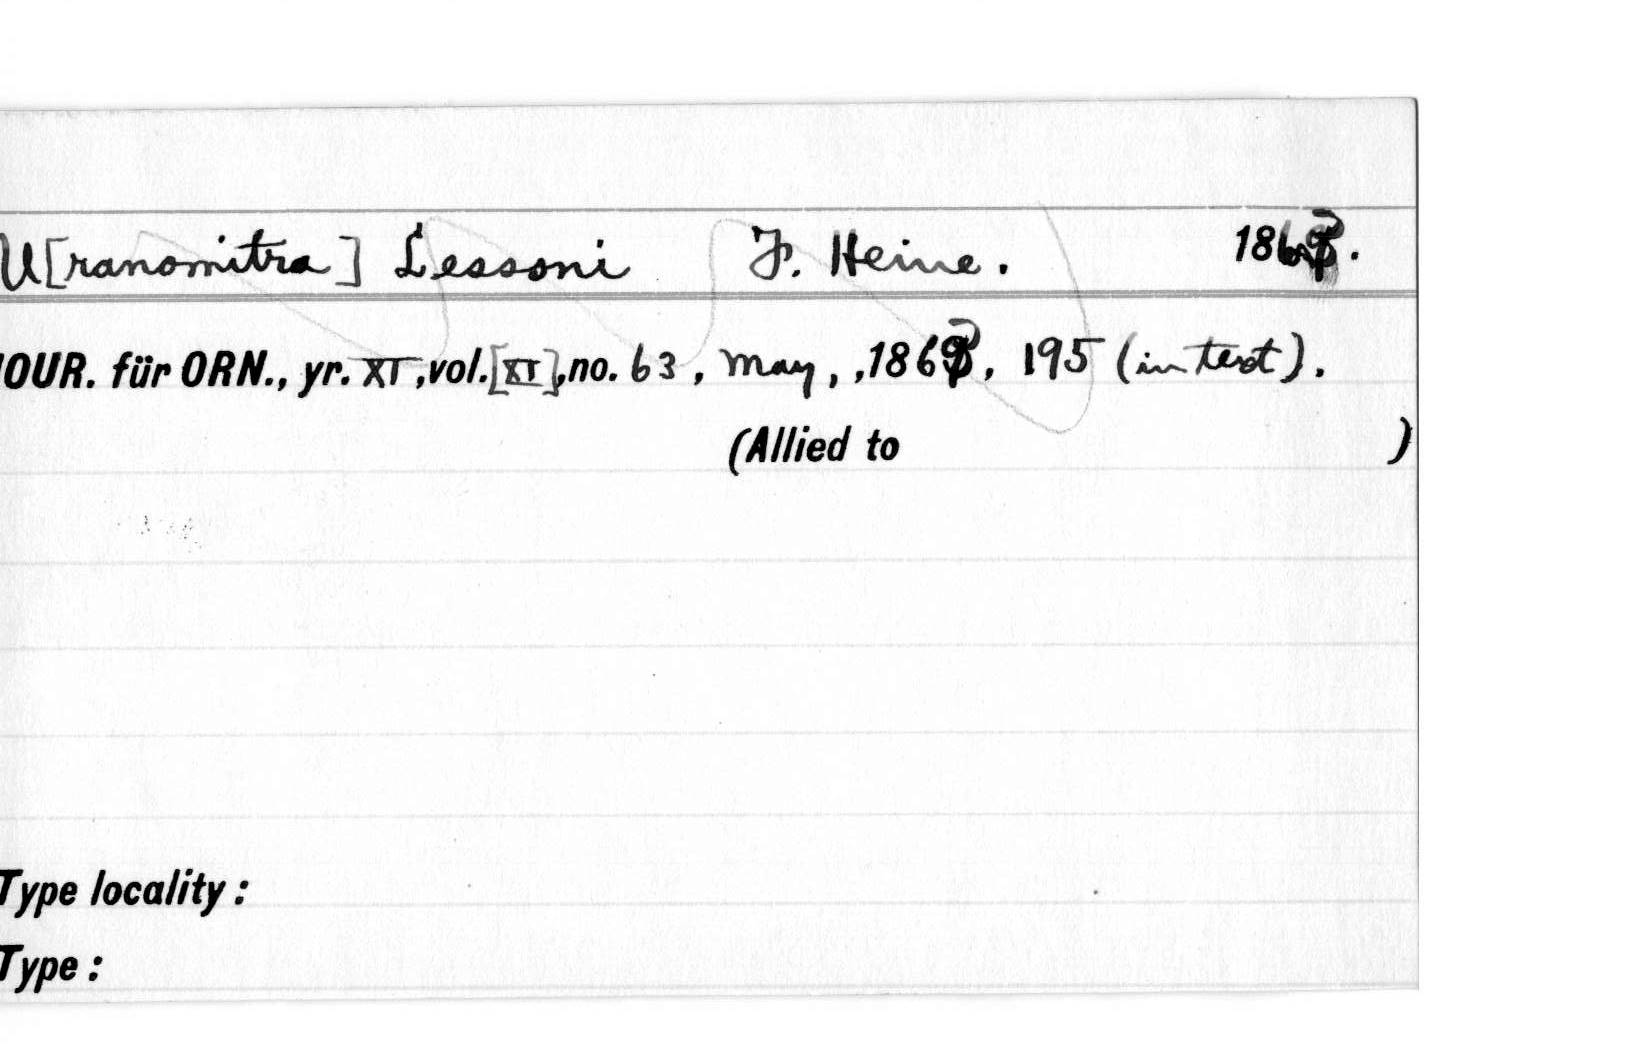 U[ranomitra] Lessoni F. Heine. 1863.
JOUR. für ORN., yr. XI, vol. [XI], no. 63, May, , 1863, 195 (in text).
(Allied to )
Type locality :
Type :